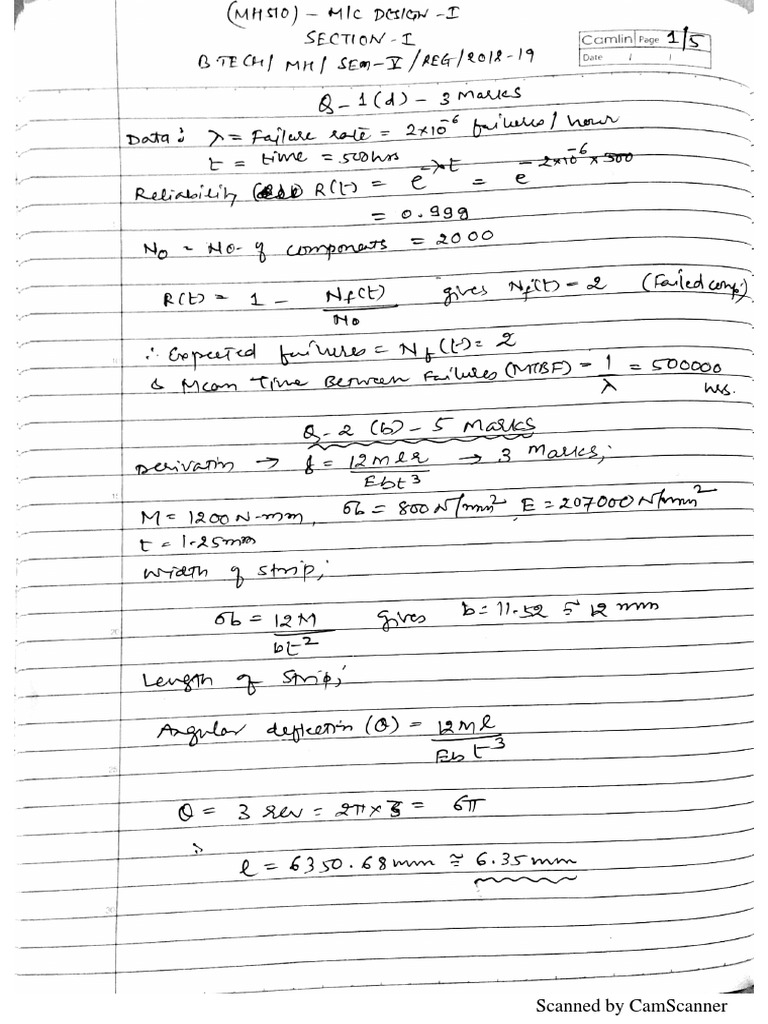 (MH510) - M/C DESIGN - I
SECTION - I
B TECH / MH / SEM - V / REG / 2018-19
Camlin Page 1/5
Date / /
Q - 1 (d) - 3 Marks
Data: λ = Failure rate = 2×10⁻⁶ failures / hour
t = time = 500hrs
Reliability R(t) = e^(-λt) = e^(-2×10⁻⁶×500)
= 0.999
No = No. of components = 2000
R(t) = 1 - Nf(t)/No gives Nf(t) = 2 (Failed comp.)
∴ Expected failures = Nf(t) = 2
& Mean Time Between Failures (MTBF) = 1/λ = 500000 hrs.
Q - 2 (b) - 5 Marks
Derivation → = 12Mlr/Ebt³ → 3 Marks;
M = 1200 N-mm, σb = 800 N/mm², E = 207000 N/mm²
t = 1.25mm
Width of strip;
σb = 12M/bt² gives b = 11.52 ≅ 12 mm
Length of strip;
Angular deflection (θ) = 12Ml/Ebt³
θ = 3 rev = 2π × 3 = 6π
∴
l = 6350.68mm ≅ 6.35mm
Scanned by CamScanner